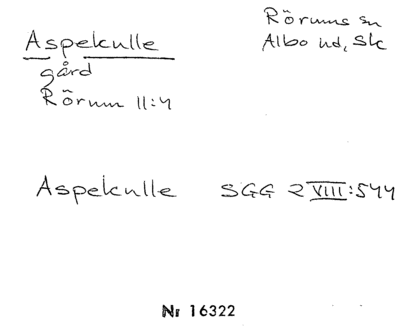 Aspekulle
gård
Rörum 11:4
Rörums sn
Albo hd, Sk
Aspekulle SGG 2 VIII:544
Nr 16322